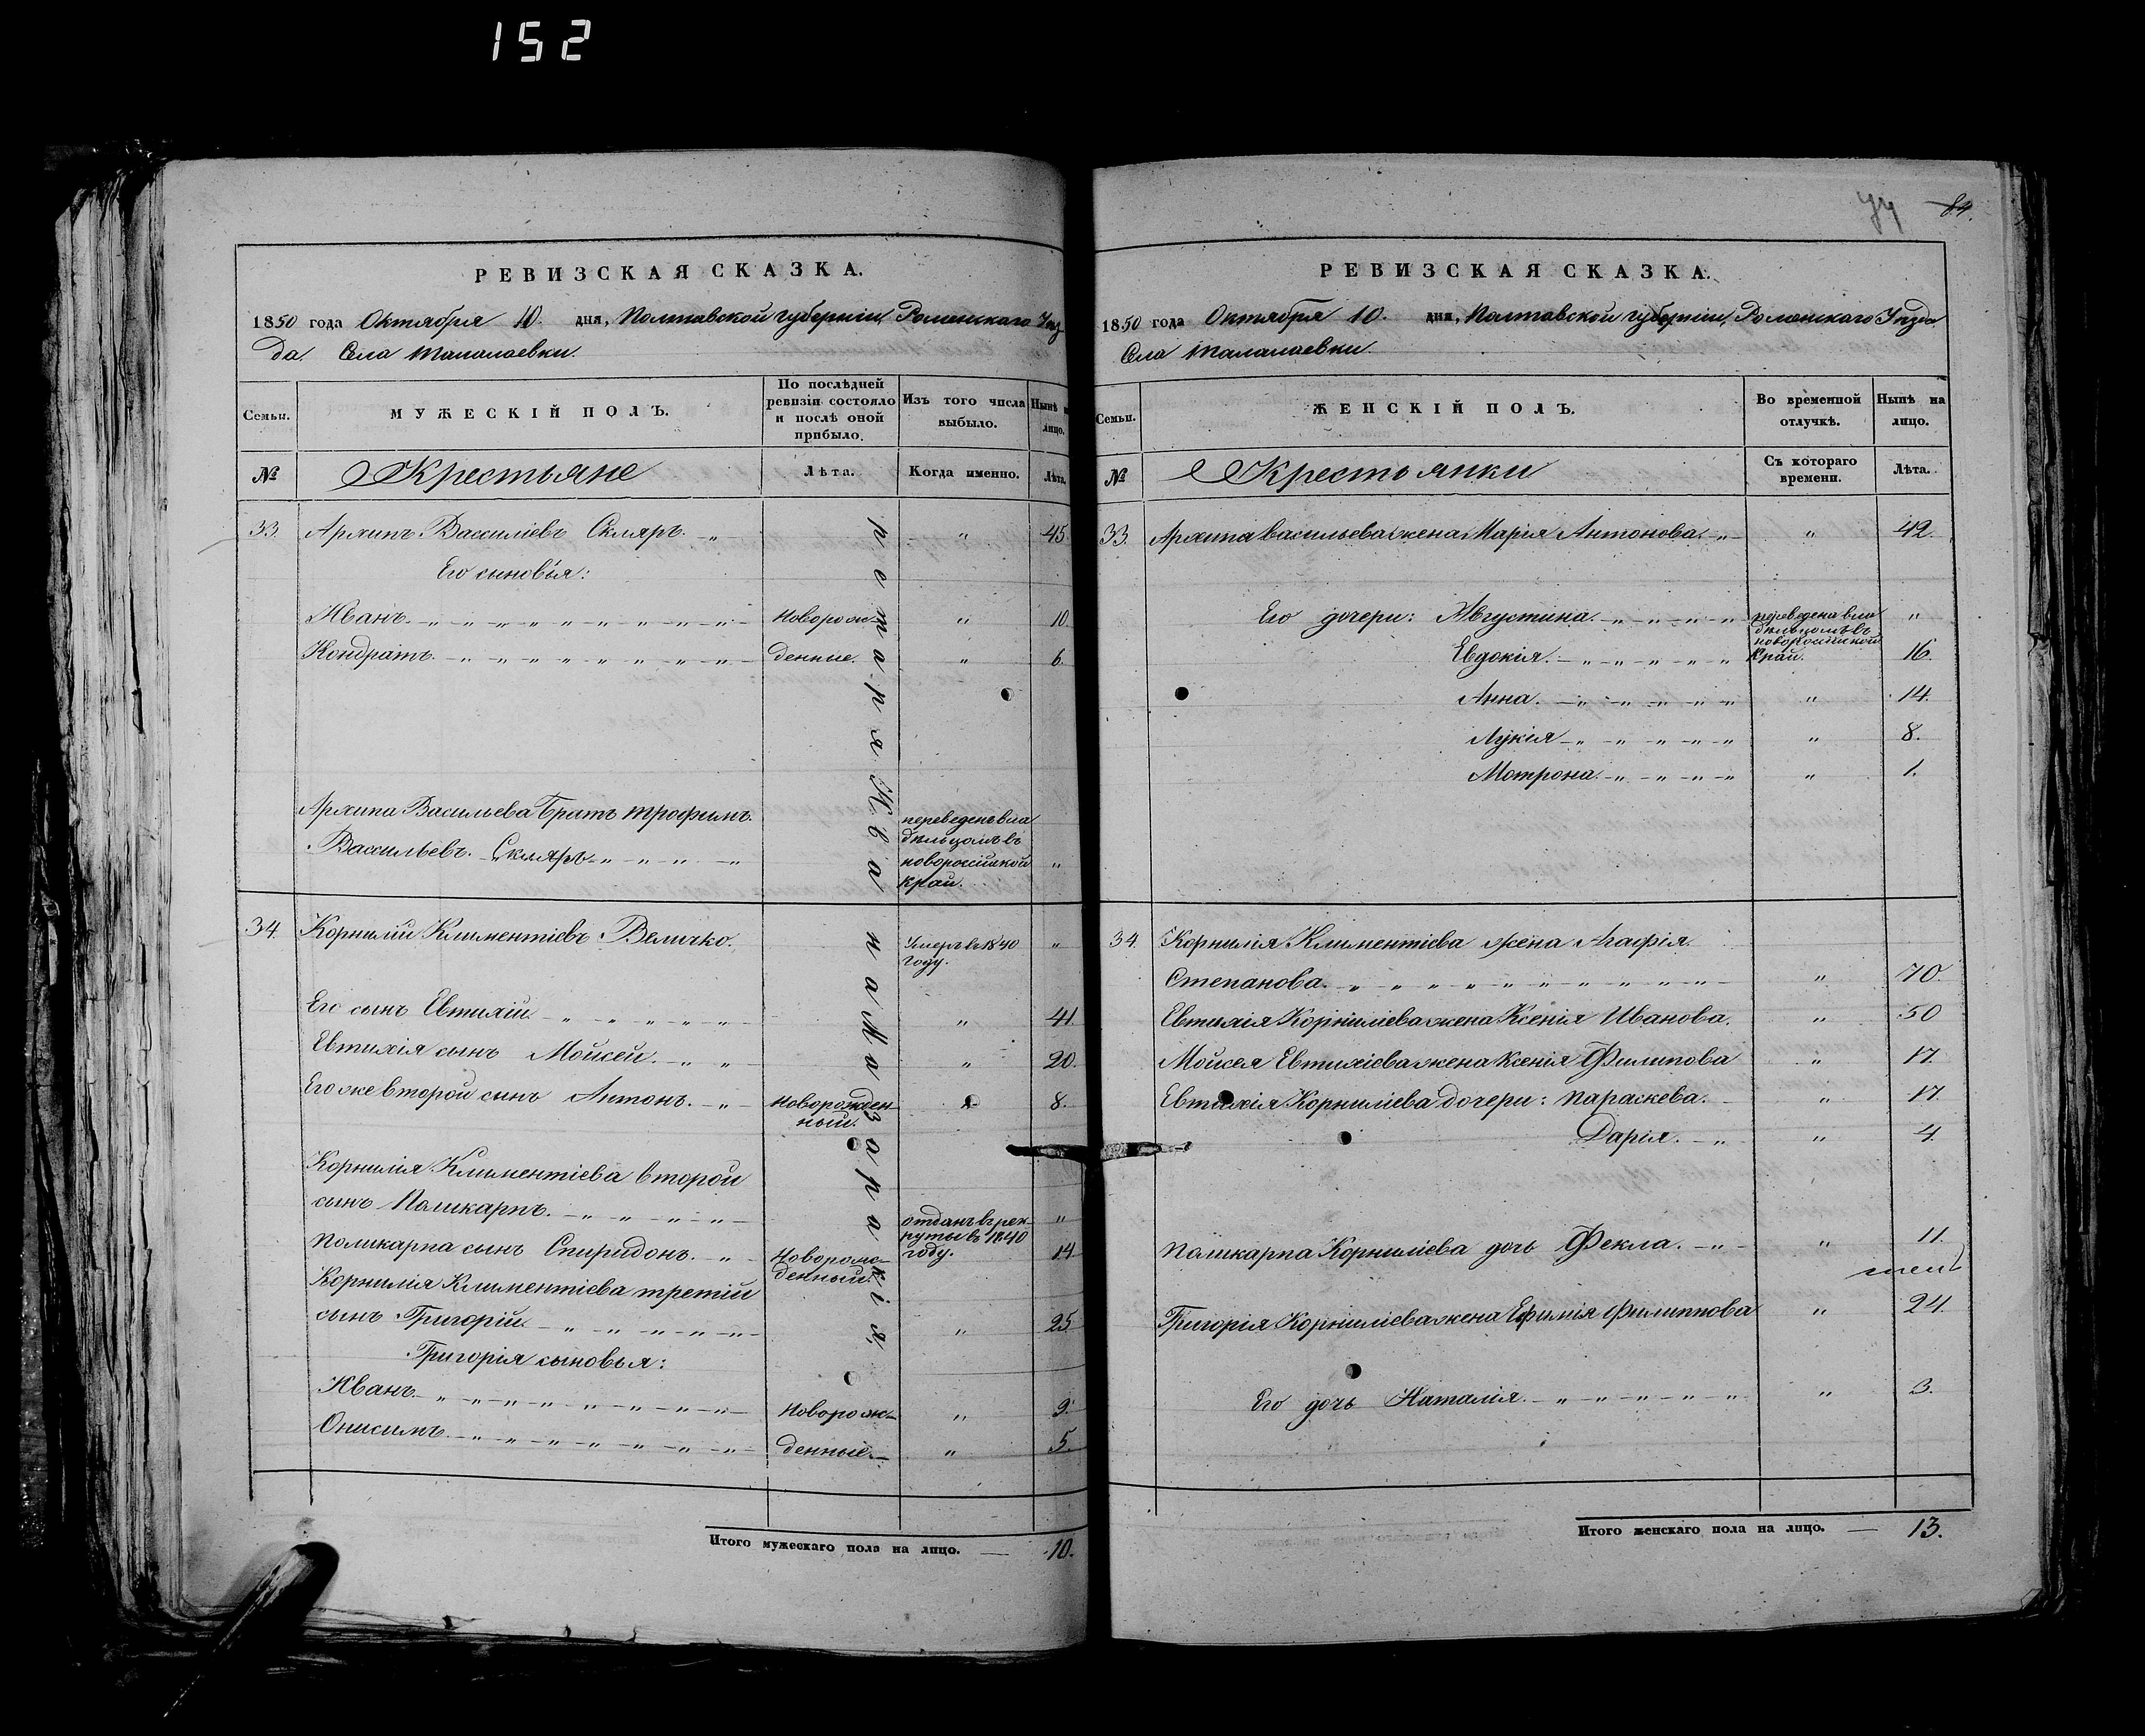 152
84.
РЕВИЗСКАЯ СКАЗКА.
1850 года Октября 10. дня, Полтавской губерніи, Роменскаго Уѣз
да Села Талалаевки.
Семьи.
МУЖЕСКІЙ ПОЛЪ.
По послѣдней ревизіи состояло и послѣ оной прибыло.
Изъ того числа выбыло.
Нынѣ на лицо.
№
Крестьяне
Лѣта.
Когда именно.
Лѣта.
33. Архипъ Василіевъ Скляръ. 45
Его сыновья:
Иванъ. Новорож- 10.
Кондратъ. денные. 6.
Архипа Васильева братъ Трофимъ. переведенъ вла
дѣльцомъ въ
Васильевъ. Скляръ новороссійской
край.
34. Корнилій Климентіевъ Величко. Умеръ въ 1840
году.
Его сынъ Евтихій 41
Евтихія сынъ Мойсей. 20.
Его же второй сынъ Антонъ. Новорожден- 8.
ный.
Корнилія Климентіева второй
сынъ Поликарпъ. отданъ въ рек-
руты въ 1840
году.
Поликарпа сынъ Спиридонъ. Новорож- 14
денный.
Корнилія Климентіева третій
сынъ Григорій. 25
Григорія сыновья:
Иванъ. Новорож- 9.
Онисимъ. денные. 5.
Итого мужескаго пола на лицо. 10.
РЕВИЗСКАЯ СКАЗКА.
1850 года Октября 10. дня, Полтавской губерніи, Роменскаго Уѣзда
Села Талалаевки.
Семьи.
ЖЕНСКІЙ ПОЛЪ.
Во временной отлучкѣ.
Нынѣ на лицо.
№
Крестьянки
Съ котораго времени.
Лѣта.
33. Архипа Васильева жена Марія Антонова. 42.
Его дочери: Августина. переведена вла
дѣльцомъ въ
новороссійской
Евдокія. край. 16.
Анна. 14.
Лукія 8.
Мотрона. 1.
34. Корнилія Климентіева жена Агафія
Степанова. 70.
Евтихія Корниліева жена Ксенія Иванова. 50
Мойсея Евтихіева жена Ксенія Филипова 17.
Евтихія Корниліева дочери: Параскева. 17.
Дарія. 4.
Поликарпа Корниліева дочь Фекла. 11.
Григорія Корниліева жена Ефимія Филиппова 24.
Его дочь Наталія. 3.
Итого женскаго пола на лицо. 13.